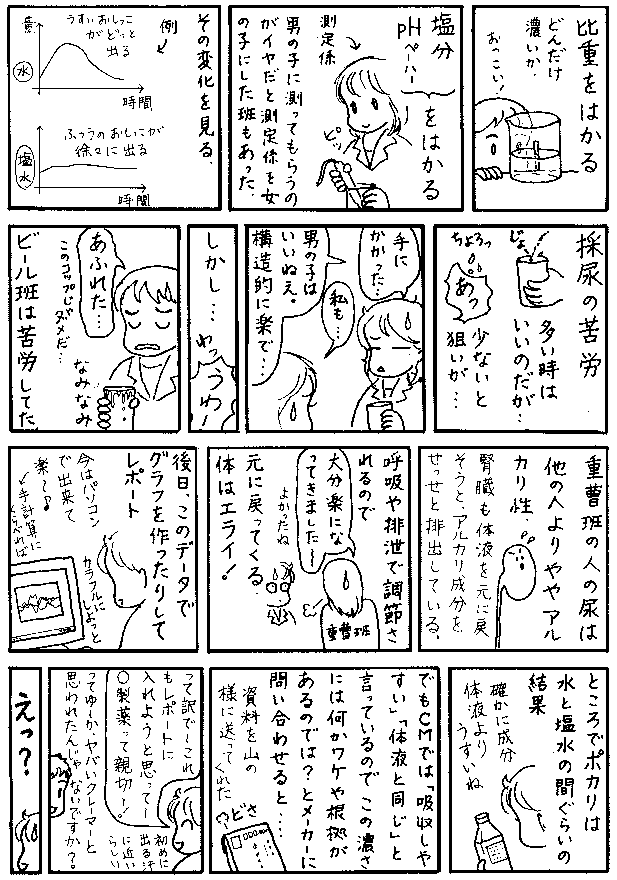 比重をはかる
どんだけ
濃いか、
おっこい!
塩分
pHペーハー
をはかる
測定係
ピッ
男の子に測ってもらうの
がイヤだと測定係を女
の子にした班もあった。
その変化を見る。
例
量
うすいおしっこ
がどっと
出る
水
時間
ふつうのおしっこが
徐々に出る
塩水
時間
採尿の苦労
じょ
多い時は
いいのだが…
ちょろっ
あっ
少ないと
狙いが…
手に
かかった…
私も…
男の子は
いいねえ。
構造的に楽で…
しかし…
わっうわ!
あふれた…
このコップじゃ
ダメだ…
なみなみ
ビール班は苦労してた
重曹班の人の尿は
他の人よりややアル
カリ性、
腎臓も体液を元に戻
そうと、アルカリ成分を
せっせと排出している。
呼吸や排泄で調節さ
れるので
大分楽にな
ってきました〜
よかったね
元に戻ってくる
体はエライ!
重曹班
後日、このデータで
グラフを作ったりして
レポート
今はパソコン
で出来て
楽〜♪
手計算に
くらべれば
カラフルに
しよっと
ところでポカリは
水と塩水の間ぐらいの
結果
確かに成分
体液より
うすいね
でもCMでは「吸収しや
すい」「体液と同じ」と
言っているので この濃さ
には何かワケや根拠が
あるのでは?とメーカーに
問い合わせると…
資料を山の
様に送ってくれた
どさ
って訳で〜これ
もレポートに
入れようと思って〜
〇製薬って親切〜!
初めに
出る汗
に近い
らしい
ってゆーか、ヤバいクレーマーと
思われたんじゃないですか?
えっ?